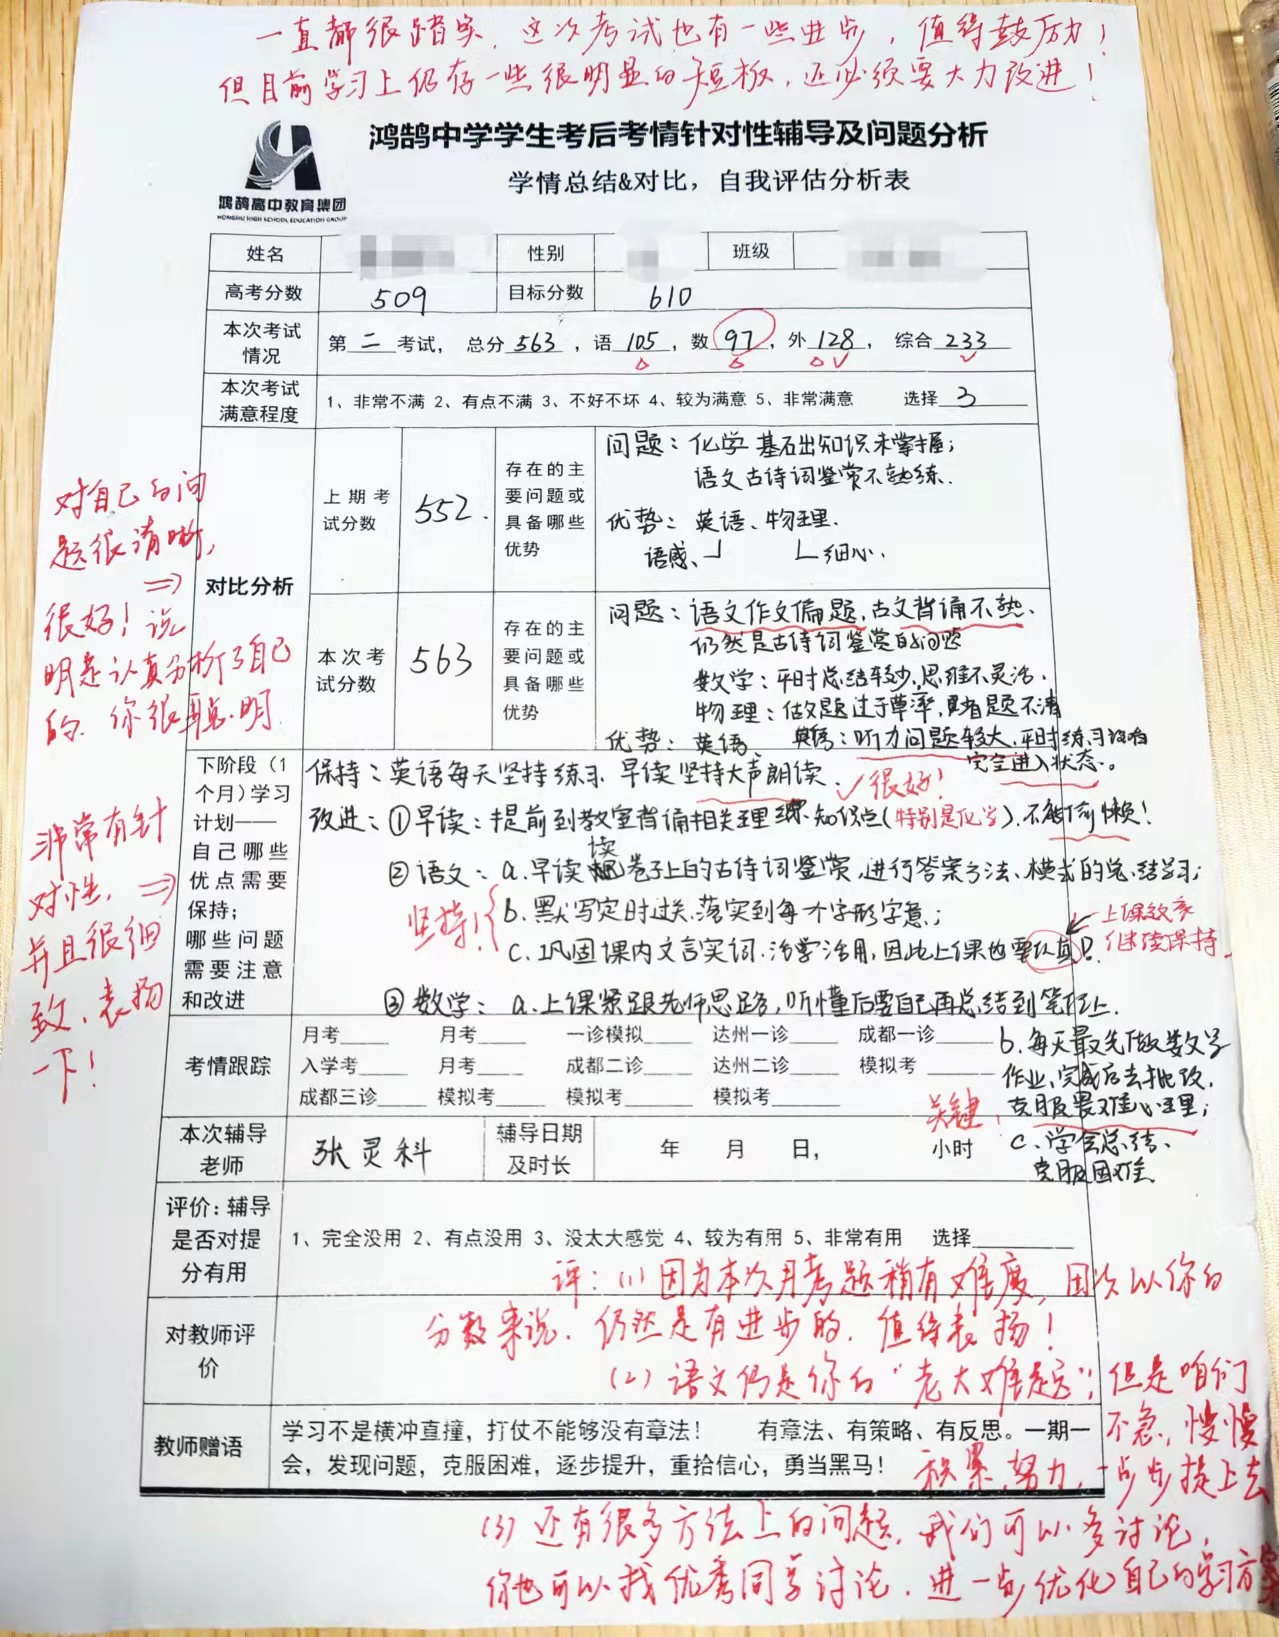 一直都很踏实，这次考试也有一些进步，值得鼓励！
但目前学习上仍存一些很明显的短板，还必须要大力改进！
鸿鹄高中教育集团
HONGHU HIGH SCHOOL EDUCATION GROUP
鸿鹄中学学生考后考情针对性辅导及问题分析
学情总结&对比，自我评估分析表
姓名 性别 班级
高考分数 509 目标分数 610
本次考试情况 第二考试， 总分563，语105，数97，外128， 综合233
本次考试满意程度 1、非常不满 2、有点不满 3、不好不坏 4、较为满意 5、非常满意 选择3
对比分析
上期考试分数 552. 存在的主要问题或具备哪些优势
问题：化学 基础知识未掌握；
语文古诗词鉴赏不熟练.
优势：英语、物理.
语感、 细心.
本次考试分数 563 存在的主要问题或具备哪些优势
问题：语文作文偏题，古文背诵不熟、
仍然是古诗词鉴赏的问题
数学：平时总结较少，思维不灵活.
物理：做题过于草率，看题不清
优势：英语、 英语：听力问题较大，平时练习没有
完全进入状态。
对自己的问
题很清晰，
⇒
很好！说
明是认真分析了自己
的. 你很聪明
下阶段（1
个月）学习
计划——
自己哪些
优点需要
保持；
哪些问题
需要注意
和改进
保持：英语每天坚持练习 早读坚持大声朗读、 √很好！
改进：①早读：提前到教室背诵相关理综知识点（特别是化学），不能偷懒！
②语文：a.早读读卷子上的古诗词鉴赏，进行答案方法、模式的总结学习；
b.默写定时过关，落实到每个字形字意；
c.巩固课内文言实词.活学活用，因此上课也要认真！
坚持！
上课效率
继续保持
③数学：a.上课紧跟老师思路，听懂后要自己再总结到笔记上.
b.每天最先做数学
作业，完成后去批改，
克服畏难心理；
关键，
c.学会总结、
克服困难
非常有针
对性， ⇒
并且很细
致，表扬
一下！
考情跟踪
月考 月考 一诊模拟 达州一诊 成都一诊
入学考 月考 成都二诊 达州二诊 模拟考
成都三诊 模拟考 模拟考 模拟考
本次辅导老师 张灵科 辅导日期及时长 年 月 日， 小时
评价：辅导是否对提分有用 1、完全没用 2、有点没用 3、没太大感觉 4、较为有用 5、非常有用 选择
对教师评价
评：(1)因为本次月考题稍有难度，因次以你的
分数来说，仍然是有进步的，值得表扬！
(2)语文仍是你的“老大难题”；但是咱们
不急，慢慢
积累，努力，一步步提上去
教师赠语
学习不是横冲直撞，打仗不能够没有章法！ 有章法、有策略、有反思。一期一
会，发现问题，克服困难，逐步提升，重拾信心，勇当黑马！
(3)还有很多方法上的问题，我们可以多讨论，
你也可以找优秀同学讨论，进一步优化自己的学习方